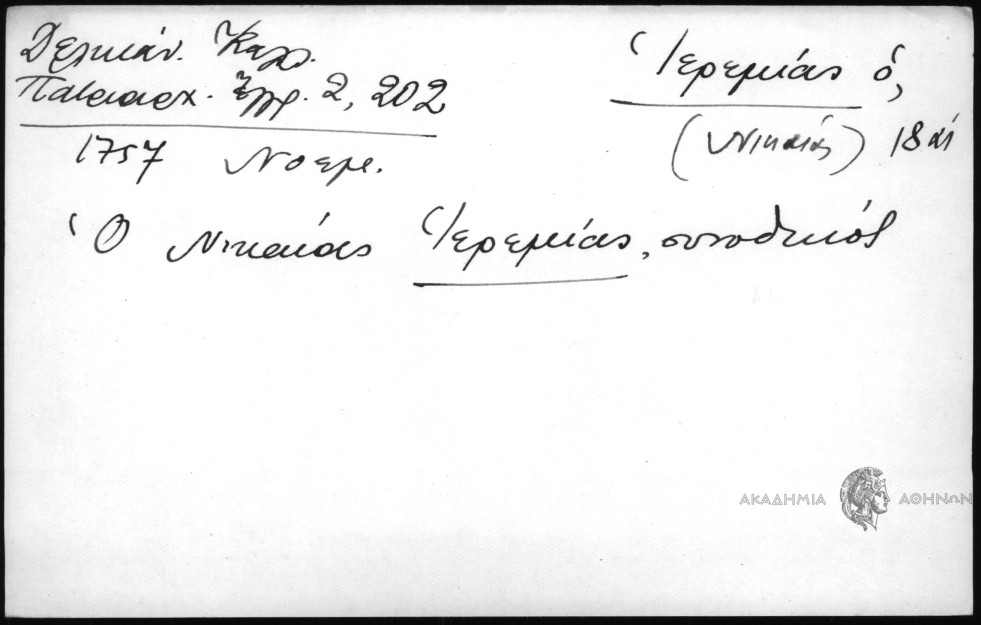 Δελικάν. Καλλ.
Πατριαρχ. Ἔγγρ. 2, 202
1757 Νοεμ.
Ἱερεμίας ὁ,
(Νικαίας) 18 αἰ
Ὁ Νικαίας Ἱερεμίας, συνοδικός
ΑΚΑΔΗΜΙΑ ΑΘΗΝΩΝ